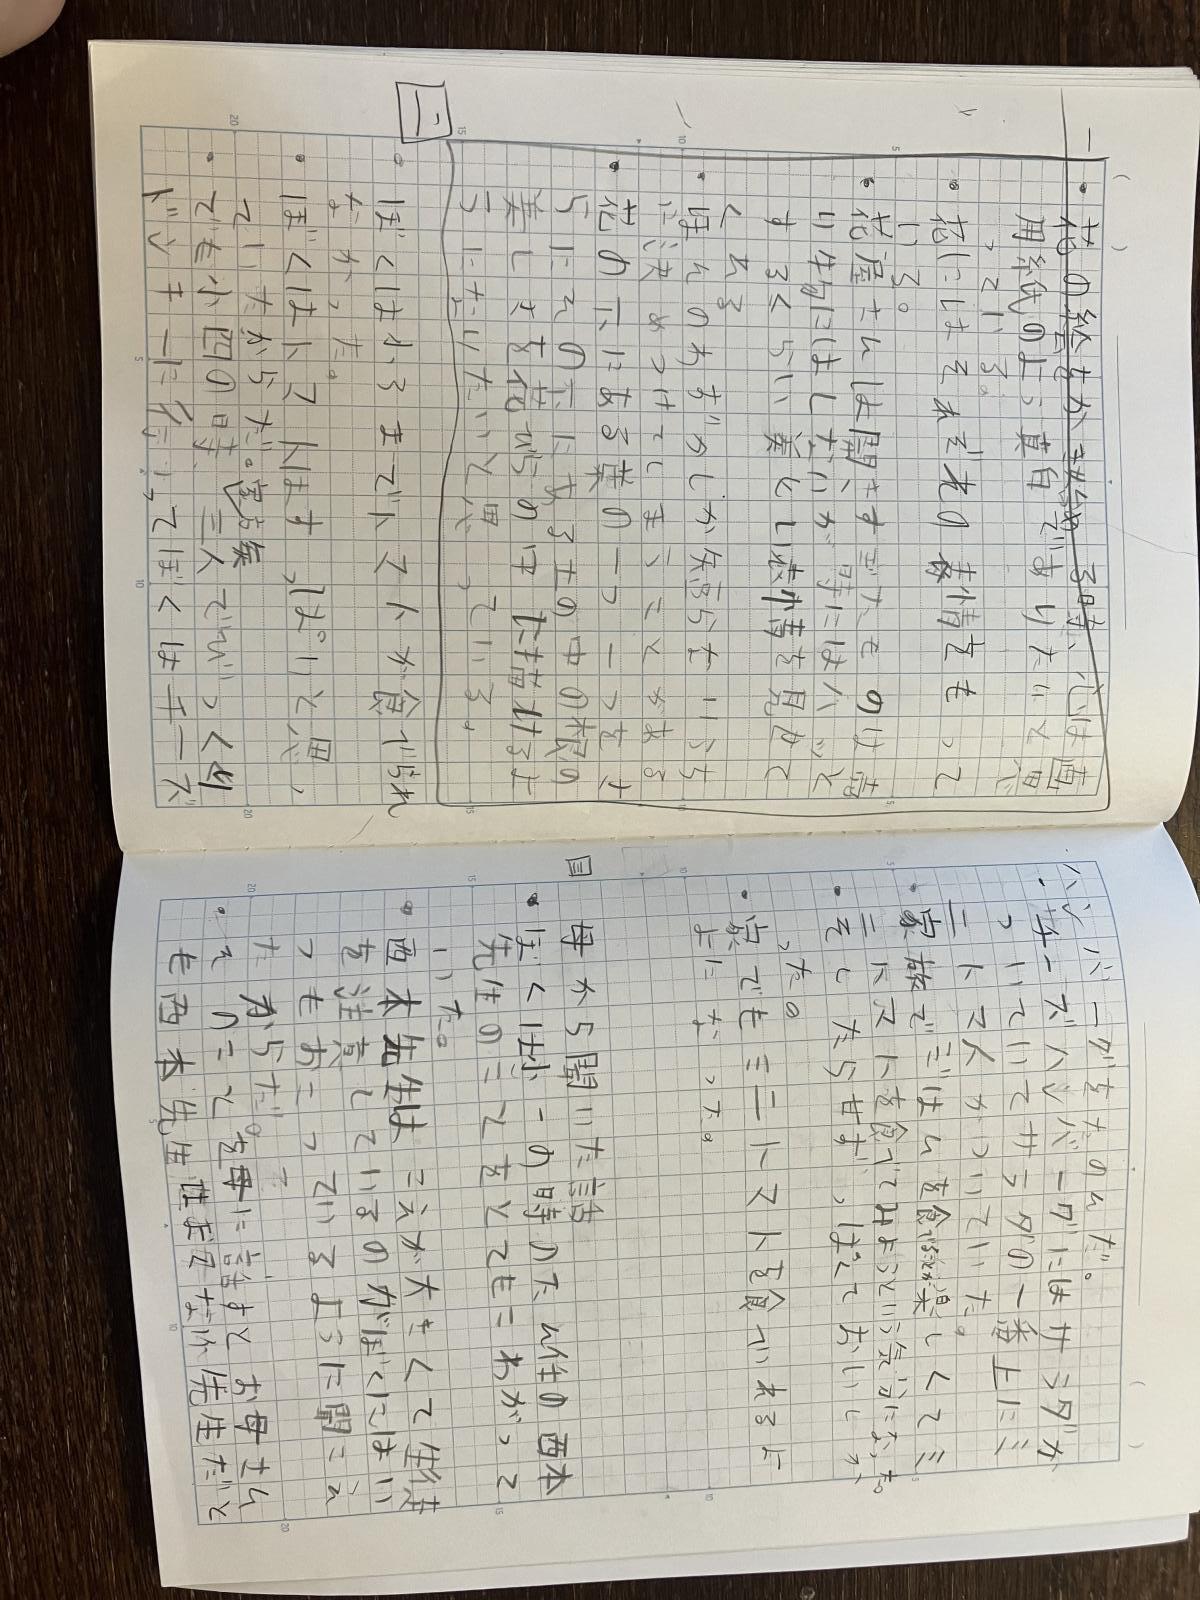 一
・花の絵をかき始める時、心は画
用紙のように真白でありたいと思
っている。
・花にはそれぞれの表情をもって
いる。
・花屋さんは開きすぎたものは売
り物にはしないが時にはハッと
するくらい美しい表情を見せて
くれる
・ほんのわずかしか知らないうち
に決めつけてしまうことがある
・花の下にある葉の一つ一つをす
らにその下にある土の中の根の
美しさを花びらの中に描けるよ
うになりたいと思っている。
二
・ぼくは小3までトマトが食べられ
なかった。
・ぼくはトマトはすっぱいと思っ
ていたからだ。気象
・でも小四の時、三人でびっくり
ドンキーに行ってぼくはチーズ
ハンバーグをたのんだ。
・チーズハンバーグにはサラダが
ついていてサラダの一番上にミ
ニトマトがついていた。
・家族でごはんを食べ楽しくてミ
ニトマトを食べてみようという気分になった。
・そしたら甘ずっぱくておいしか
った。
・家でもミニトマトを食べれるよ
うになった。
三
母から聞いた話
・ぼくは小一の時のたん任の西本
先生のことをとてもこわがって
いた。
・西本先生はこえが大きくて生徒
を注意しているのがぼくにはい
つもおこっているように聞こえ
たからだ。
・そのことを母に話すとお母さん
も西本先生はまるでな先生だと